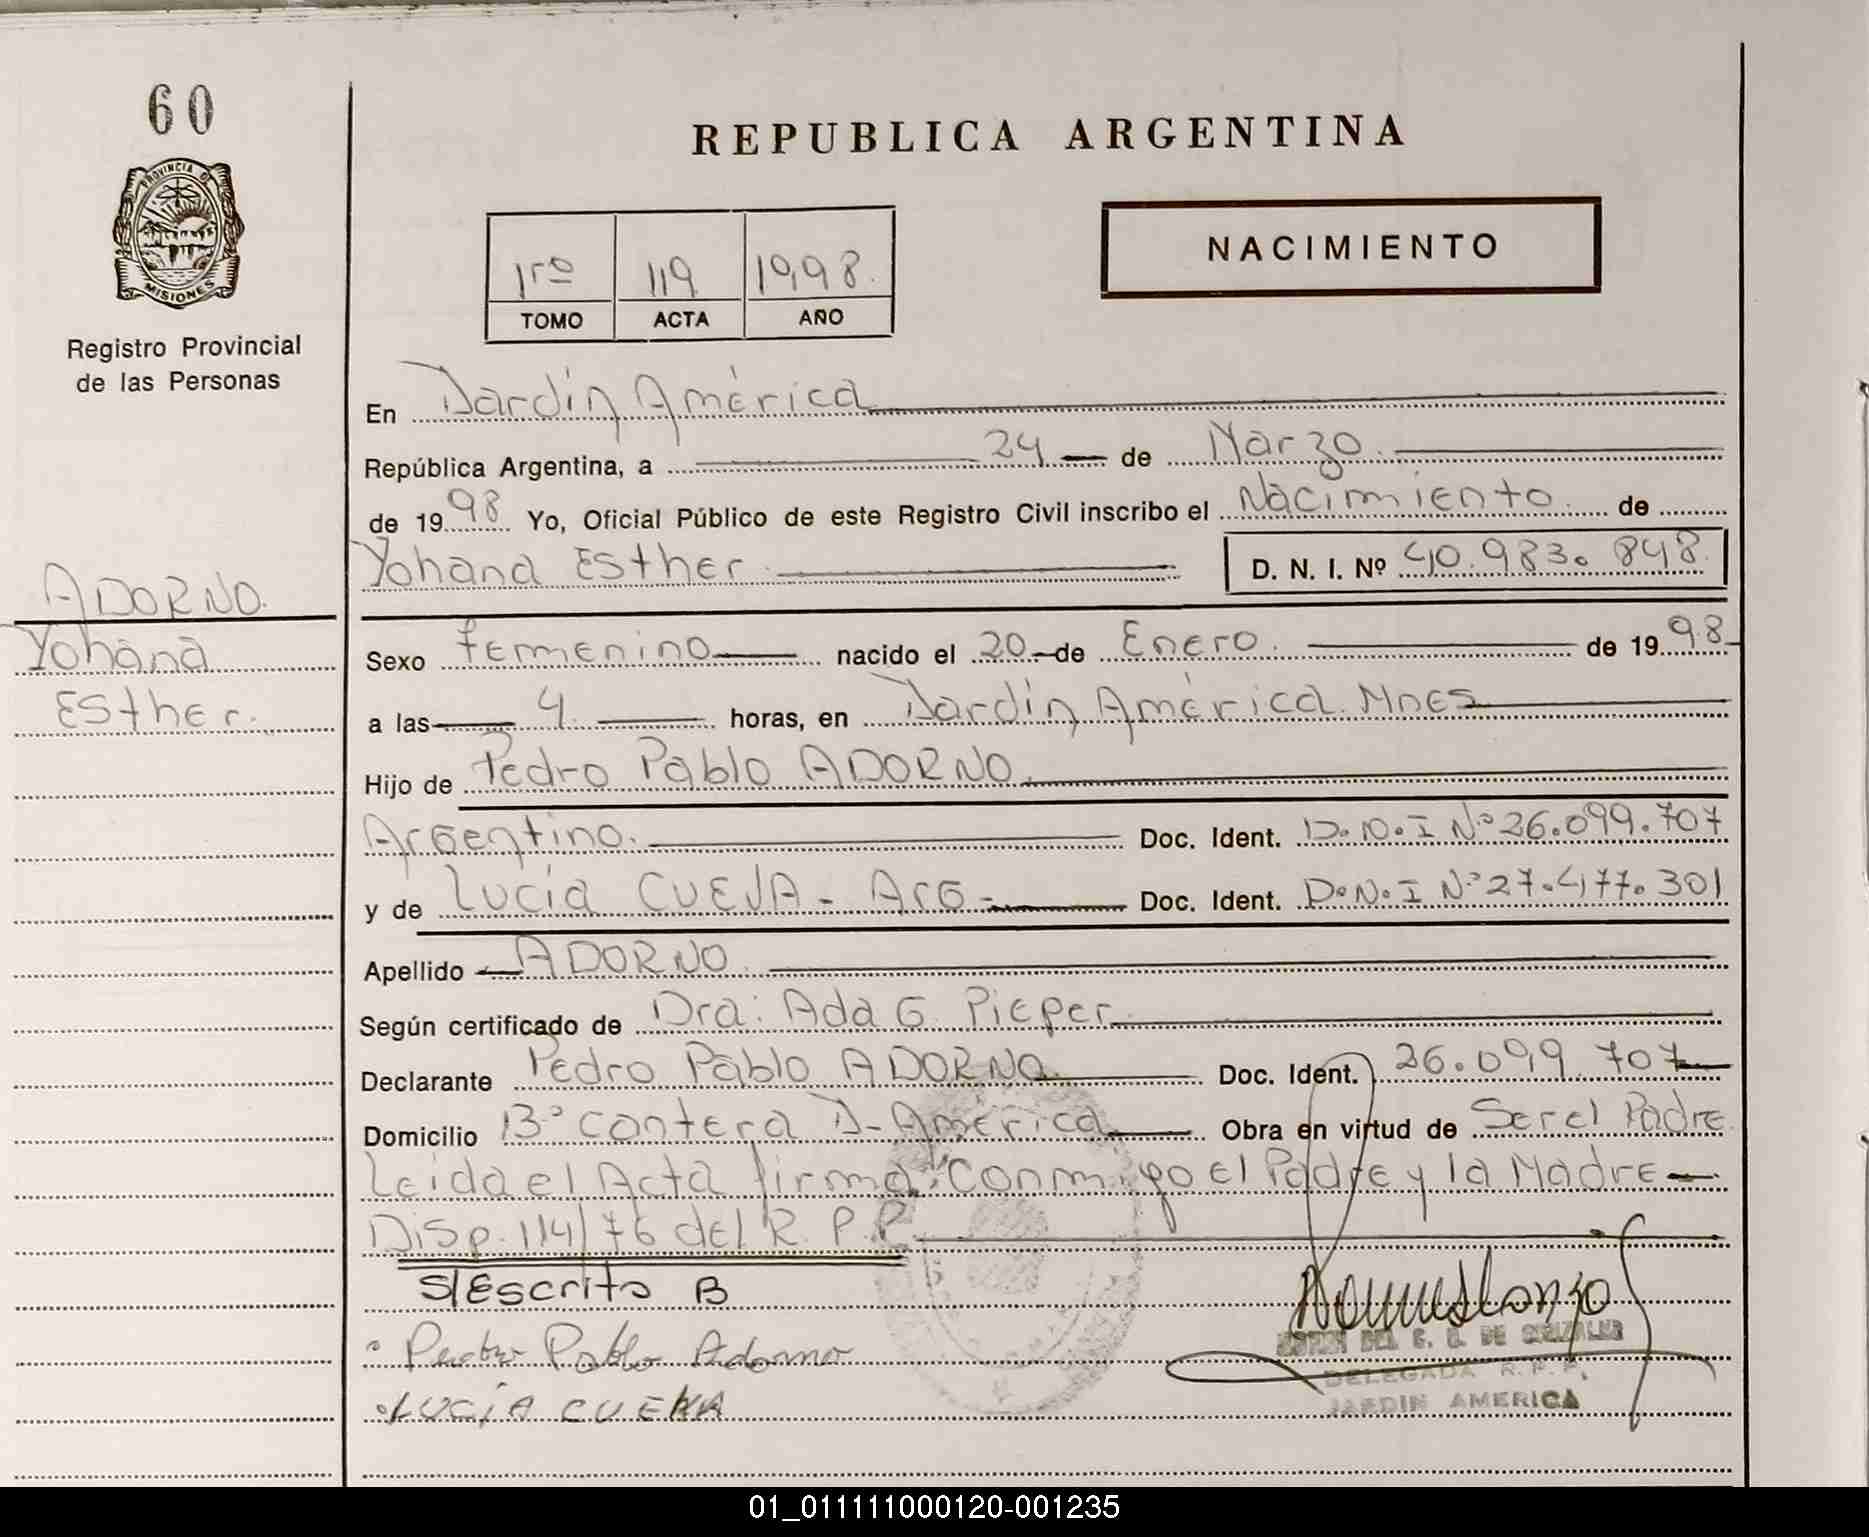 60
PROVINCIA DE
MISIONES
Registro Provincial
de las Personas
ADORNO.
Yohana
Esther.
REPUBLICA ARGENTINA
1ro 119 1998.
TOMO ACTA AÑO
NACIMIENTO
En Jardín América
República Argentina, a 24 de Marzo.
de 1998 Yo, Oficial Público de este Registro Civil inscribo el Nacimiento de
Yohana Esther D. N. I. Nº 40.983.848.
Sexo femenino nacido el 20 de Enero. de 1998
a las 4. horas, en Jardín América. Mnes
Hijo de Pedro Pablo ADORNO.
Argentino. Doc. Ident. D.N.I Nº 26.099.707
y de Lucía CUEJA - Arg - Doc. Ident. D.N.I Nº 27.477.301
Apellido ADORNO.
Según certificado de Dra: Ada G. Pieper
Declarante Pedro Pablo ADORNO Doc. Ident. 26.099.707
Domicilio 13º Contera J-América Obra en virtud de Ser el Padre.
Leida el Acta firma Conmigo el Padre y la Madre
Disp. 114/76 del R. P. P.
S/Escrito B
Pedro Pablo Adorno
LUCÍA CUEKA
DEL C. G. DE GONZALEZ
DELEGADA R. P. P.
JARDIN AMERICA
01_011111000120-001235